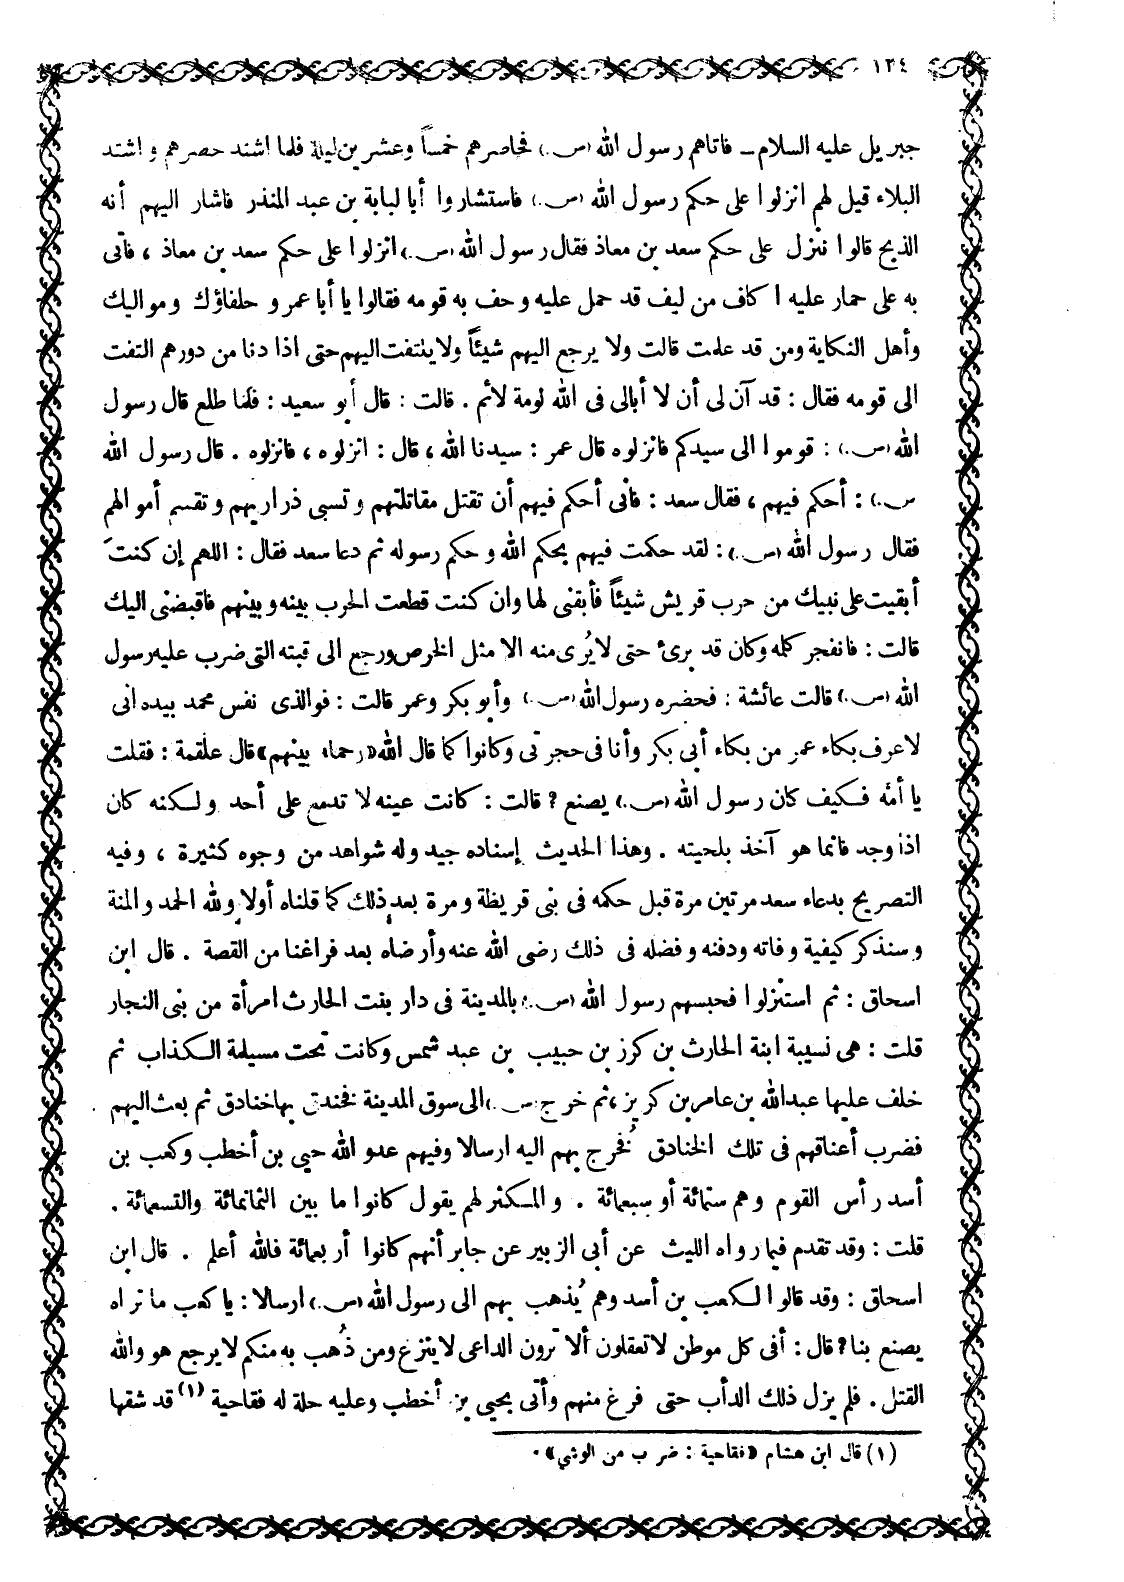 ١٢٤
جبريل عليه السلام ــ فاتاهم رسول الله (ص.) فحاصرهم خمساً وعشرين ليلة فلما اشتد حصرهم واشتد
البلاء قيل لهم انزلوا على حكم رسول الله (ص.) فاستشاروا أبا لبابة بن عبد المنذر فاشار اليهم أنه
الذبح قالوا ننزل على حكم سعد بن معاذ فقال رسول الله (ص.) انزلوا على حكم سعد بن معاذ ، فأتى
به على حمار عليه ا كاف من ليف قد حمل عليه وحف به قومه فقالوا يا أبا عمرو حلفاؤك ومواليك
وأهل النكاية ومن قد علمت قالت ولا يرجع اليهم شيئاً ولا يلتفت اليهم حتى اذا دنا من دورهم التفت
الى قومه فقال : قد آن لى أن لا أبالى فى الله لومة لائم . قالت : قال أبو سعيد : فلما طلع قال رسول
الله (ص.) : قوموا الى سيدكم فانزلوه قال عمر : سيدنا الله ، قال : انزلوه ، فانزلوه . قال رسول الله
ص.) : أحكم فيهم ، فقال سعد : فأنى أحكم فيهم أن تقتل مقاتلتهم وتسبى ذراريهم وتقسم أموالهم
فقال رسول الله (ص.) : لقد حكمت فيهم بحكم الله وحكم رسوله ثم دعا سعد فقال : اللهم إن كنتَ
أبقيت على نبيك من حرب قريش شيئاً فأبقنى لها وان كنت قطعت الحرب بينه وبينهم فاقبضنى اليك
قالت : فانفجر كلمه وكان قد برئ حتى لا يُرى منه الا مثل الخرص ورجع الى قبته التى ضرب عليه رسول
الله (ص.) قالت عائشة : فحضره رسول الله (ص.) وأبو بكر وعمر قالت : فوالذى نفس محمد بيده انى
لاعرف بكاء عمر من بكاء أبى بكر وأنا فى حجرتى وكانوا كما قال الله «رحماء بينهم» قال علقمة : فقلت
يا أمّه فكيف كان رسول الله (ص.) يصنع ? قالت : كانت عينه لا تدمع على أحد ولكنه كان
اذا وجد فانما هو آخذ بلحيته . وهذا الحديث إسناده جيد وله شواهد من وجوه كثيرة ، وفيه
التصريح بدعاء سعد مرتين مرة قبل حكمه فى بنى قريظة ومرة بعد ذلك كما قلناه أولا ولله الحمد والمنة
وسنذكر كيفية وفاته ودفنه وفضله فى ذلك رضى الله عنه وأرضاه بعد فراغنا من القصة . قال ابن
اسحاق : ثم استنزلوا فحبسهم رسول الله (ص.) بالمدينة فى دار بنت الحارث امرأة من بنى النجار
قلت : هى نسيبة ابنة الحارث بن كرز بن حبيب بن عبد شمس وكانت تحت مسيلمة الكذاب ثم
خلف عليها عبدالله بن عامر بن كريز ، ثم خرج (ص.) الى سوق المدينة فخندق بها خنادق ثم بعث اليهم
فضرب أعناقهم فى تلك الخنادق فخُرج بهم اليه ارسالا وفيهم عدو الله حيى بن أخطب وكعب بن
أسد رأس القوم وهم ستمائة أو سبعمائة . والمكثر لهم يقول كانوا ما بين الثمانمائة والتسعمائة .
قلت : وقد تقدم فيما رواه الليث عن أبى الزبير عن جابر أنهم كانوا أربعمائة فالله أعلم . قال ابن
اسحاق : وقد قالوا لكعب بن أسد وهم يُذهب بهم الى رسول الله (ص.) ارسالا : يا كعب ما تراه
يصنع بنا ? قال : أفى كل موطن لا تعقلون ألا ترون الداعى لا ينزع ومن ذُهب به منكم لا يرجع هو والله
القتل . فلم يزل ذلك الدأب حتى فرغ منهم وأتى بحيى بن أخطب وعليه حلة له فقاحية (١) قد شقها
(١) قال ابن هشام «فقاحية : ضرب من الوشي» .